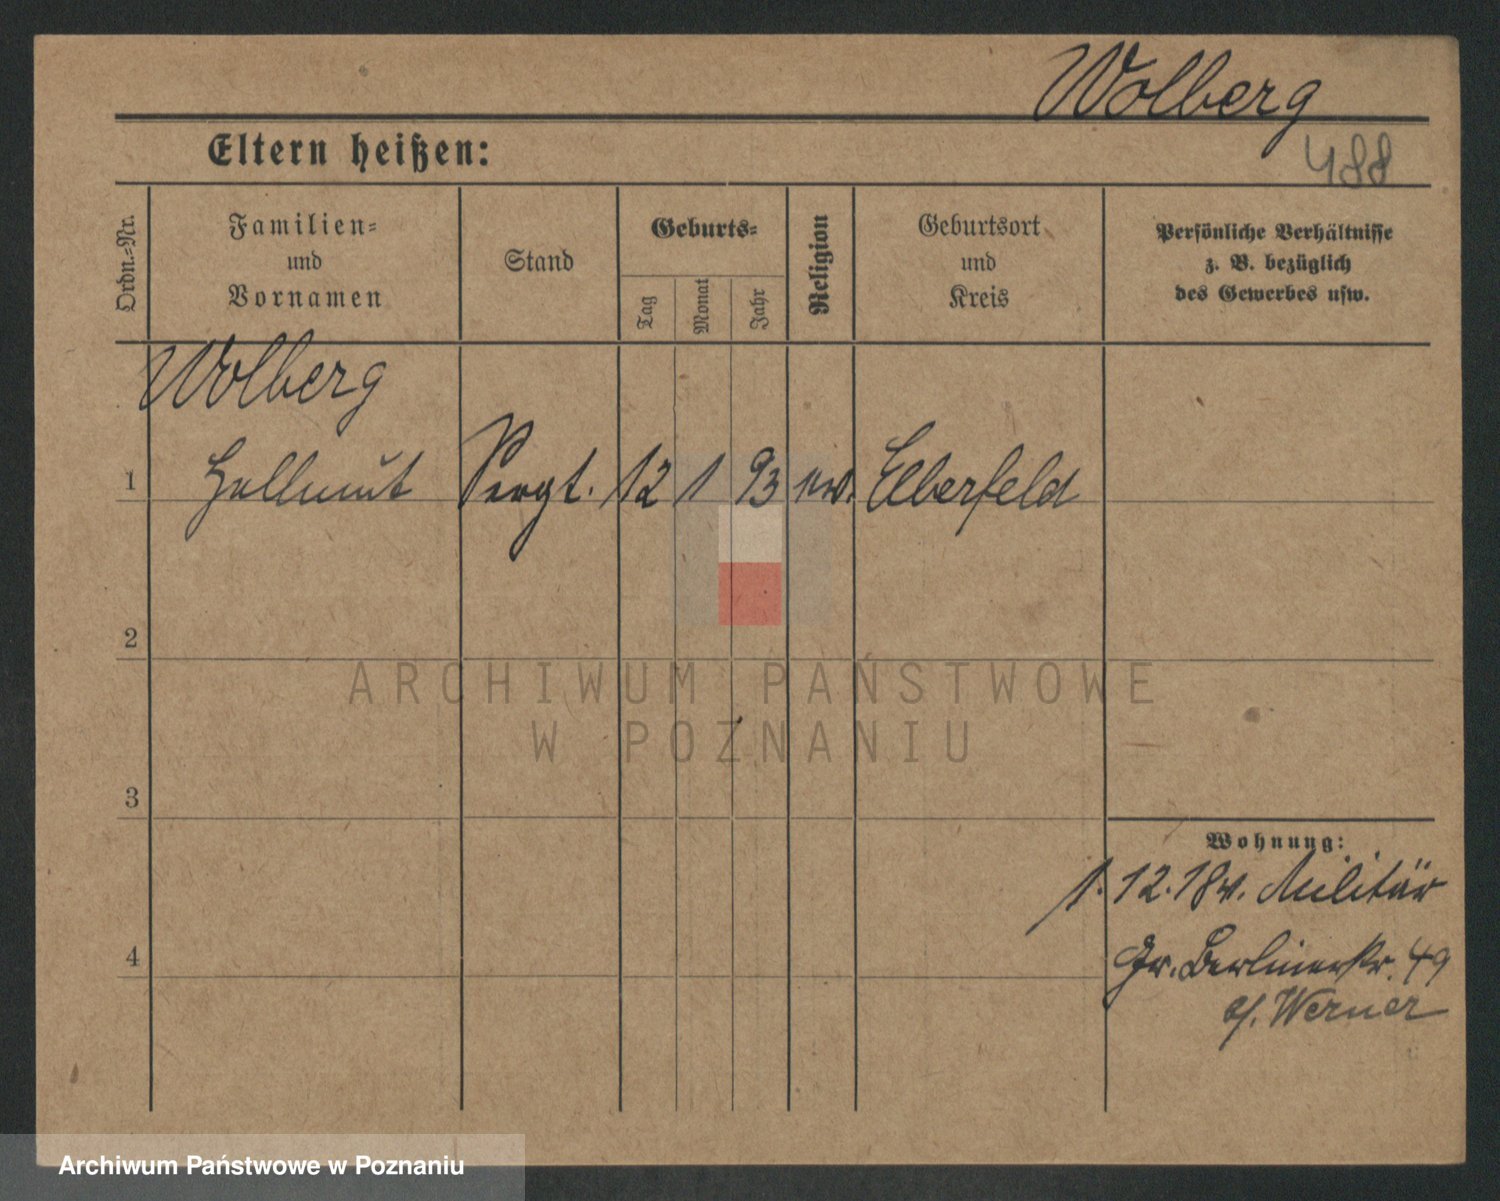 Wolberg
Eltern heißen:
488
Ordn.-Nr.
Familien-
und
Vornamen
Stand
Geburts-
Tag
Monat
Jahr
Religion
Geburtsort
und
Kreis
Persönliche Verhältnisse
z. B. bezüglich
des Gewerbes usw.
Wolberg
1 Hellmut Sergt. 12 1 93 ev. Elberfeld
2
ARCHIWUM PAŃSTWOWE
W POZNANIU
3
Wohnung:
1. 12. 18 v. Militär
4
Gr. Berlinerstr. 49
b/. Werner
Archiwum Państwowe w Poznaniu